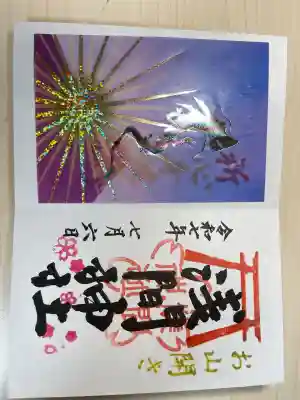 お山開き
淺間神社
令和七年
七月六日
祈